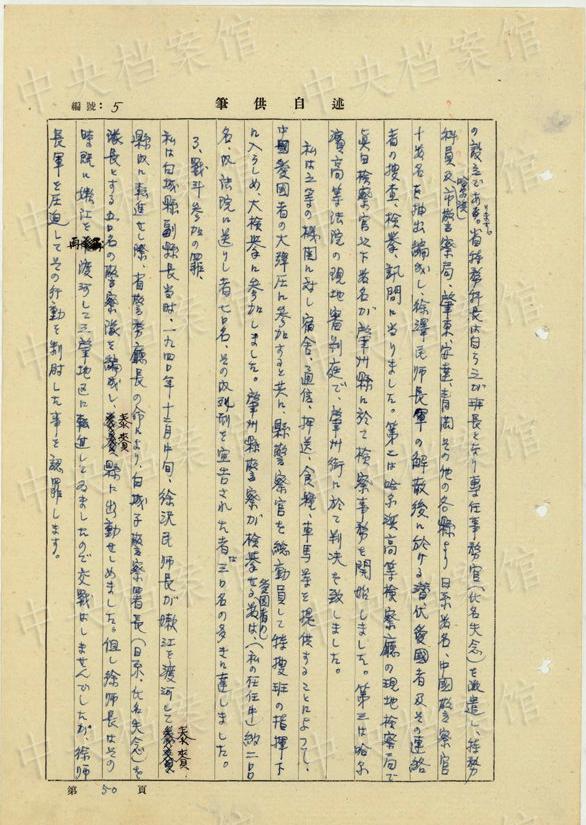 中央档案馆
編號：5
筆供自述
の設立である。省特務科長は自ら三か班長となり専任事務官（氏名失念）を派遣し、特務
科員及市警察局、肇東、安達、青岡その他の各縣より日系若名、中國警察官
十若名を抽出編成し、徐澤民師長軍の解散後に於ける潜伏愛國者及その連絡
者の捜査、検挙、訊問に当りました。第二は哈尔濱高等検察廳の現地検察局で
眞田検察官以下若名が肇州縣に於て検察事務を開始しました。第三は哈尔
濱高等法院の現地審判庭で、肇州街に於て判决を致しました。
私は三等の機関に対し宿舎、通信、押送、食糧、車馬等を提供することによって、
中國愛國者の大弾圧に参加すると共に、縣警察官を総動員して特捜班の指揮下
に入らしめ、大検挙に参加しました。肇州縣警察が検挙せる数は、（私の在任中）約二百
愛国者の
名、以法院に送りし者七〇名、その内現刑を宣告された者は三〇名の多きに達しました。
3、戰斗参加の罪、
私は白城縣副縣長当時、一九四〇年十二月中旬、徐沢民師長が嫩江を渡河して
泰賚
縣内に轉進せし際、省警務廳長の命により、白城子警察署長（日系、氏名失念）を
隊長とする五〇名の警察隊を編成し、泰賚縣に出動せしめました。但し徐師長はその
時既に嫩江を再渡河して三肇地区に轉進してゐましたので交戰はしませんでしたが、徐師
長軍を圧迫してその行動を制肘した事を認罪します。
第 50 頁